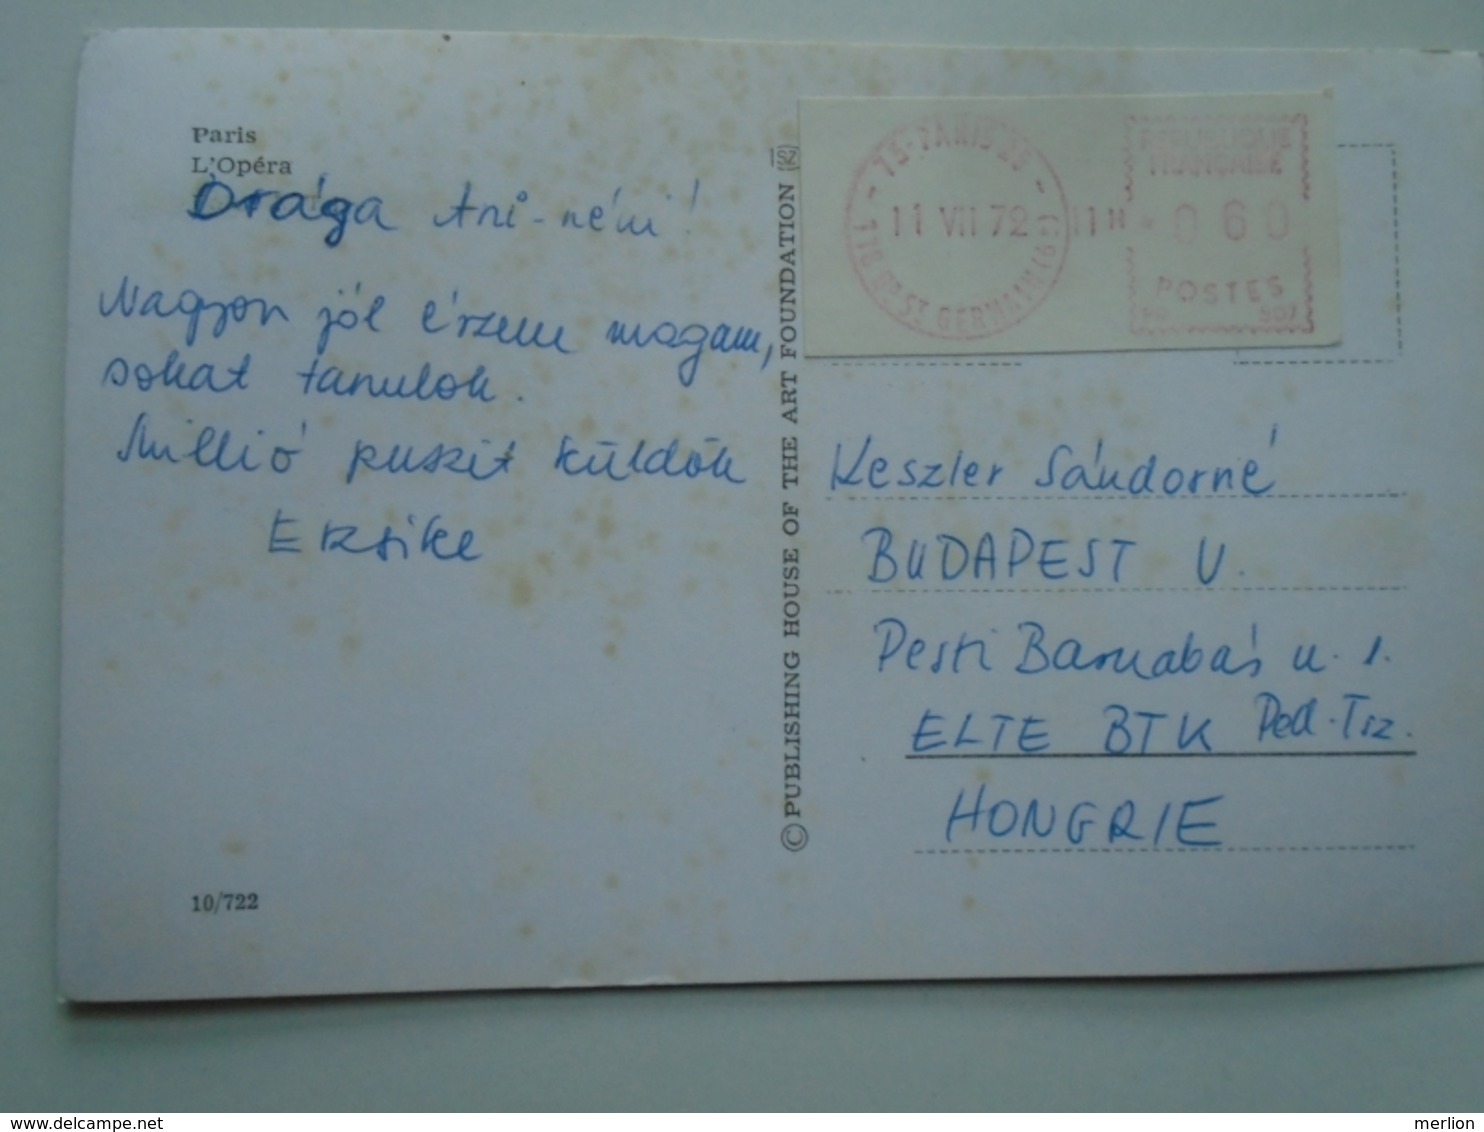 Paris
L'Opéra
Drága Ani-néni!
Nagyon jól érzem magam,
sokat tanulok.
Millió puszit küldök
Erzsike
10/722
© PUBLISHING HOUSE OF THE ART FOUNDATION
75-PARIS 25
11 VII 72
11H
REPUBLIQUE
FRANÇAISE
0 60
POSTES
Keszler Sándorné
BUDAPEST V.
Pesti Barnabás u. 1.
ELTE BTK Ped. Tsz.
HONGRIE
merlion